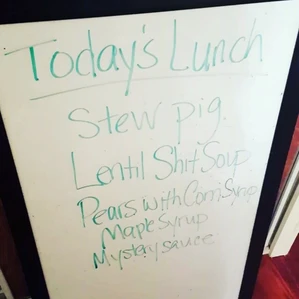 Today's Lunch
Stew pig.
Lentil Shit Soup
Pears with Corn Syrup
Maple Syrup
Mystery sauce